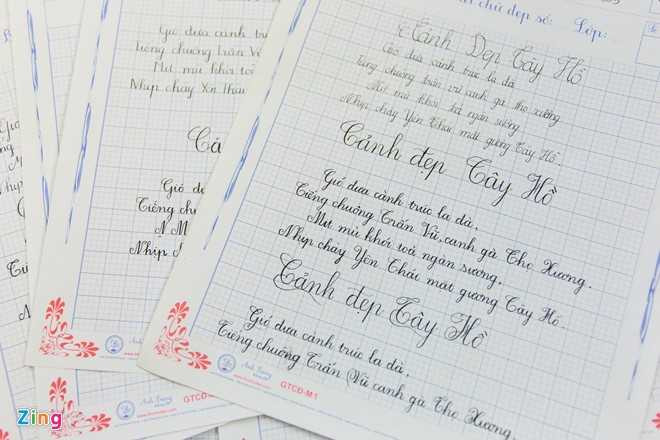 Gió đưa cành trúc
Tiếng chuông Trấn Vũ
Mịt mù khói toả
Nhịp chày Yên Thái
Gió
Tiếng chuông
Nhịp
chữ đẹp số: Lớp:
Cảnh Đẹp Tây Hồ
Gió đưa cành trúc la đà
Tiếng chuông trấn vũ canh gà thọ xương
Mịt mù khói toả ngàn sương
Nhịp chày Yên Thái mặt gương Tây Hồ.
Cảnh đẹp Tây Hồ
Gió đưa cành trúc la đà,
Tiếng chuông Trấn Vũ, canh gà Thọ Xương.
Mịt mù khói toả ngàn sương,
Nhịp chày Yên Thái mặt gương Tây Hồ.
Cảnh đẹp Tây Hồ
Gió đưa cành trúc la đà,
Tiếng chuông Trấn Vũ canh gà Thọ Xương.
GTCD-M1
Zing